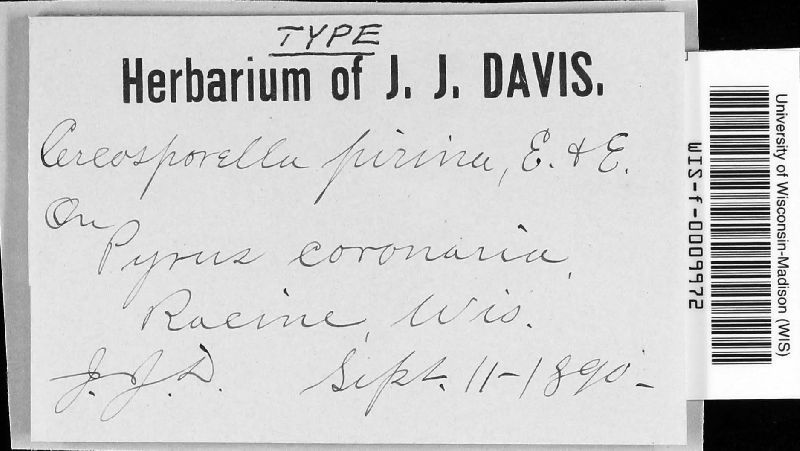 TYPE
Herbarium of J. J. DAVIS.
Cercosporella pirina, E. & E.
On
Pyrus coronaria,
Racine, Wis.
J.J.D. Sept. 11-1890-
WIS-f-0009972
University of Wisconsin-Madison (WIS)